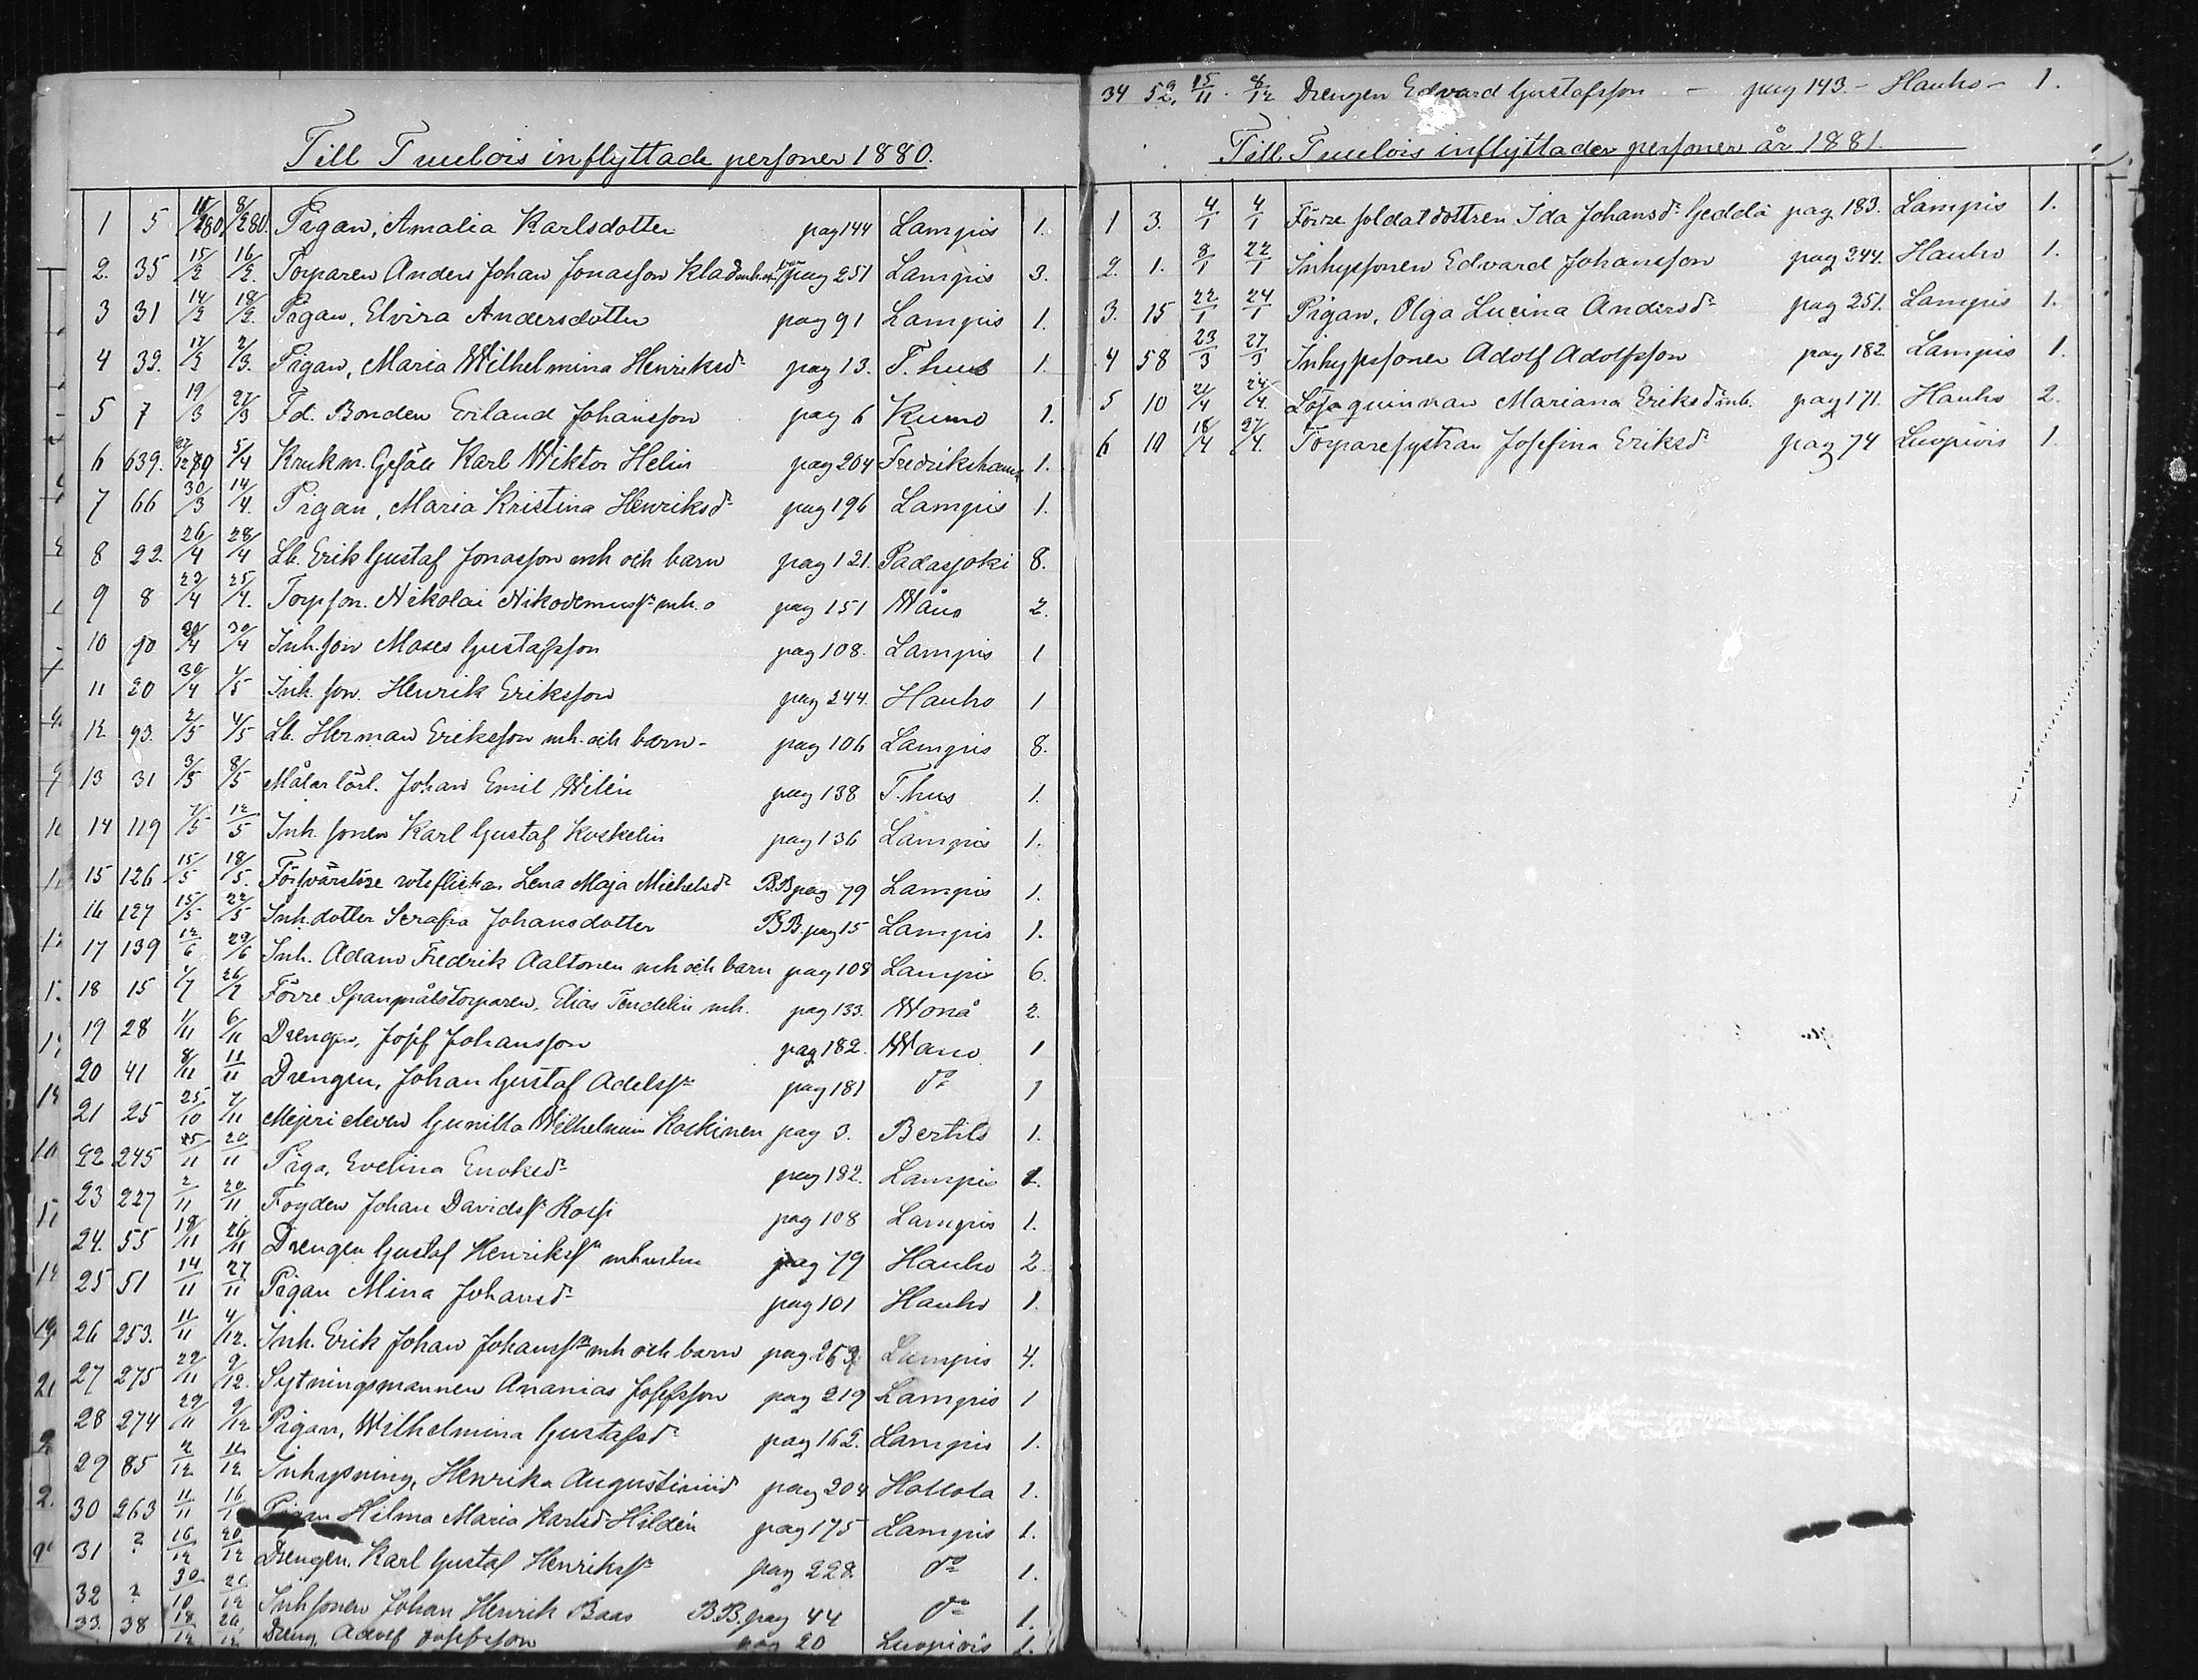 Till Tuulois inflyttade personer 1880.
1 5 11/1 80 8/2 80. Pigan, Amalia Karlsdotter pag 144 Lampis 1.
2. 35 15/2 16/2. Torparen Anders Johan Jonasson Klad mh pag 251 Lampis 3.
3 31 14/2 18/2. Pigan, Elvira Andersdotter pag 91 Lampis 1.
4 39. 17/2 2/3. Pigan, Maria Wilhelmina Henriksdr pag 13. T. hus 1.
5 7 19/3 27/3 Fd. Bonden Erland Johansson pag 6 Kumo 1.
6 639. 80 5/4 Krukm. Gesäll Karl Wiktor Helin pag 204 Fredrikshamn 1.
7 66 30/3 14/4. Pigan, Maria Kristina Henriksdr pag 196 Lampis 1.
8 22. 26/4 28/4 Lb. Erik Gustaf Jonasson mh och barn pag 121. Padasjoki 8.
9 8 22/4 25/4. Torpson. Nikolai Nikodemussr mh. o pag 151 Wånå 2.
10 90 30/4 30/4 Inh. son Moses Gustafsson pag 108. Lampis 1
11 20 30/4 1/5 Inh. son. Henrik Eriksson pag 244. Hauho 1
12 93. 2/5 4/5 Lb. Herman Eriksson mh. och barn - pag 106 Lampis 8.
13 31 3/5 8/5 Målar lärl. Johan Emil Wilén pag 138 T. hus 1.
14 119 7/5 12/5 Inh. sonen Karl Gustaf Koskelin pag 136 Lampis 1.
15 126 15/5 18/5. Försvarslöse roteflickan Lena Maja Michelsdr B.B pag 79 Lampis 1.
16 127 15/5 22/5 Inh. dotter Serafia Johansdotter B.B. pag 15 Lampis 1.
17 139 12/6 29/6 Inh. Adam Fredrik Aaltonen mh och barn pag 108 Lampis 6.
18 15 1/7 26/7 Förre Spanmålstorparen, Elias Tendelin mh. pag 133. Wånå 2.
19 28 1/11 6/11 Drengen, Josef Johansson pag 182. Wånå 1
20 41 8/11 11/11 Drengen, Johan Gustaf Adelssr pag 181 do 1
21 25 25/10 7/11 Mejeri eleven Gunilla Wilhelmina Koskinen pag 3. Bertils 1.
22 245 15/11 20/11 Piga, Evelina Enoksdr pag 182. Lampis 1.
23 227 2/11 20/11 Fogden Johan Davidssr Rossi pag 108 Lampis 1.
24. 55 18/11 26/11 Drengen Gustaf Henrikssr pag 79 Hauho 2
25 51 14/11 27/11 Pigan Mina Johansdr pag 101 Hauho 1.
26 253. 11/11 4/12. Inh. Erik Johan Johanssr mh och barn pag Lampis 4.
27 275 22/11 9/12. Sytningsmannen Ananias Josefsson pag 219 Lampis 1
28 274 29/11 9/12 Pigan, Wilhelmina Gustafsdr pag 162. Lampis 1.
29 85 2/12 11/12 Inhysning, Henrika Augustinisd pag 204 Hollola 1.
30 263 11/11 16/1 Pigan Hilma Maria Karlsdr Hildén pag 175 Lampis 1.
31 ? 16/12 20/12 Drengen, Karl Gustaf Henrikssr pag 228. do 1.
32 ? 30/10 21/12 Inh sonen Johan Henrik Baas B.B. pag 44 do 1.
33. 38 18/12 20/12 Dreng. Adolf Josefsson pag 20 Luopiois 1.
34 52. 15/11. 8/12 Drengen Edvard Gustafsson - pag 143 - Hauho - 1.
Till Tuulois inflyttader personer år 1881.
1 3. 4/1 4/1 Förre soldatdottren Ida Johansdr Gedda pag 183. Lampis 1.
2. 1. 8/1 22/1 Inhyssonen Edvard Johansson pag 244. Hauho 1.
3. 15 22/1 24/1 Pigan, Olga Lucina Andersdr pag 251. Lampis 1.
4 58 23/3 27/3 Inhyssonen Adolf Adolfsson pag 182. Lampis 1.
5 10 21/4 24/4. Lösa quinnan Mariana Eriksdr mb. pag 171. Hauho 2.
6 10 18/4 27/4. Torparesystran Josefina Eriksdr pag 74 Luopiois 1.